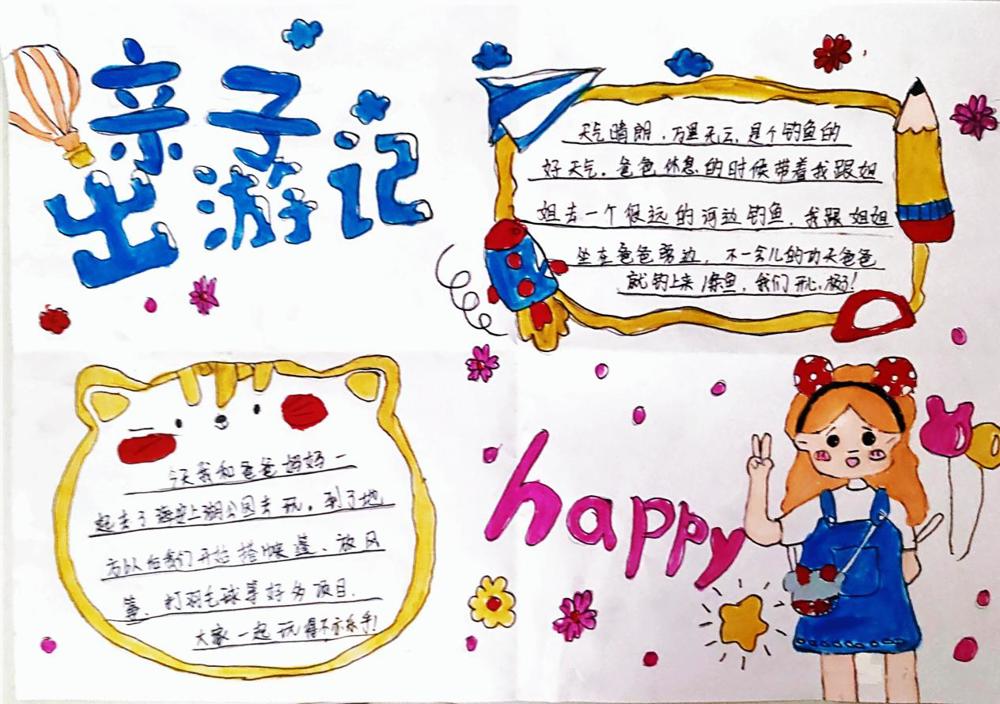 亲子
出游记
天气晴朗，万里无云，是个钓鱼的
好天气。爸爸休息的时候带着我跟姐
姐去一个很远的河边钓鱼，我跟姐姐
坐在爸爸旁边，不一会儿的功夫爸爸
就钓上来1条鱼，我们开心极了!
今天我和爸爸妈妈一
起去了海安上湖公园去玩。到了地
方以后我们开始搭帐篷、放风
筝、打羽毛球等好多项目.
大家一起玩得不亦乐乎!
happy